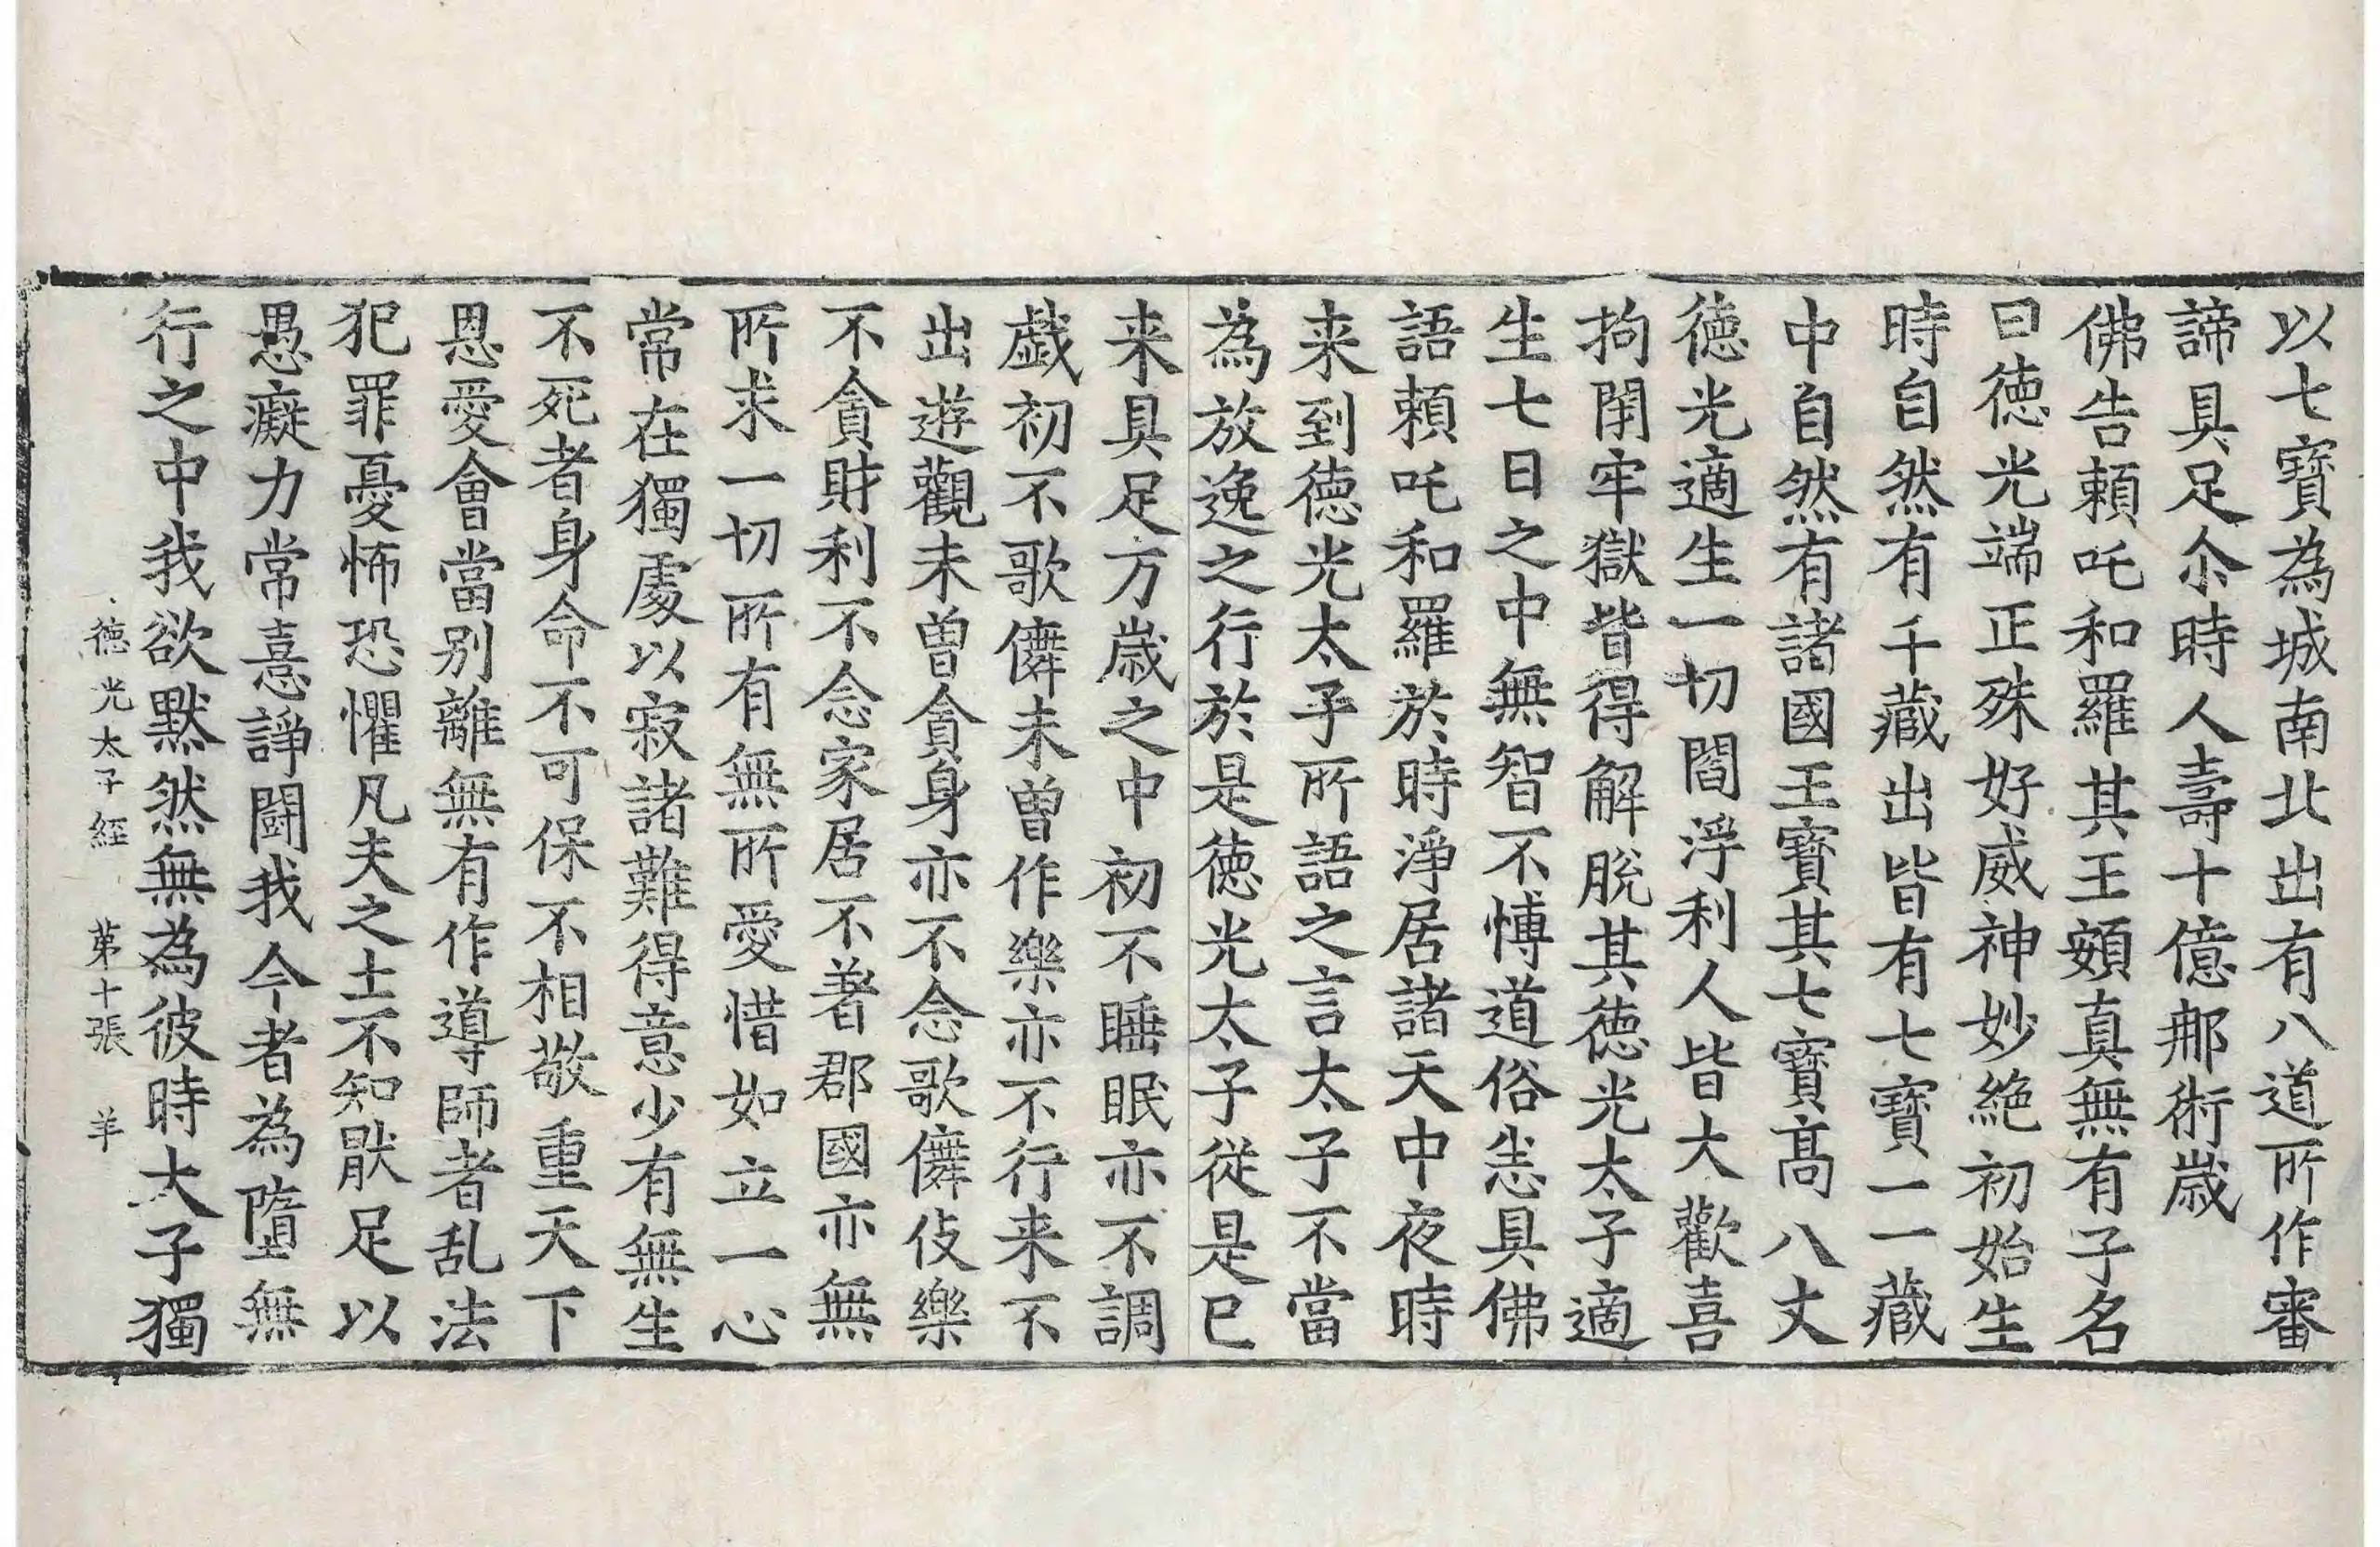 以七寶為城南北出有八道所作審
諦具足尒時人壽十億那術歲
佛告賴吒和羅其王頞真無有子名
曰德光端正殊好威神妙絶初始生
時自然有千藏出皆有七寶一一藏
中自然有諸國王寶其七寶高八丈
德光適生一切閻浮利人皆大歡喜
拘閇牢獄皆得解脫其德光太子適
生七日之中無智不愽道俗恙具佛
語賴吒和羅於時淨居諸天中夜時
来到德光太子所語之言太子不當
為放逸之行於是德光太子從是已
来具足万歲之中初不睡眠亦不調
戲初不歌儛未曽作樂亦不行来不
出遊觀未曽貪身亦不念歌儛伎樂
不貪財利不念家居不著郡國亦無
所求一切所有無所愛惜如立一心
常在獨處以寂諸難得意少有無生
不死者身命不可保不相敬重天下
恩愛會當別離無有作導師者乱法
犯罪憂怖恐懼凡夫之士不知猒足以
愚癡力常憙諍鬪我今者為墮無
行之中我欲默然無為彼時太子獨
德光太子經 苐十張 羊